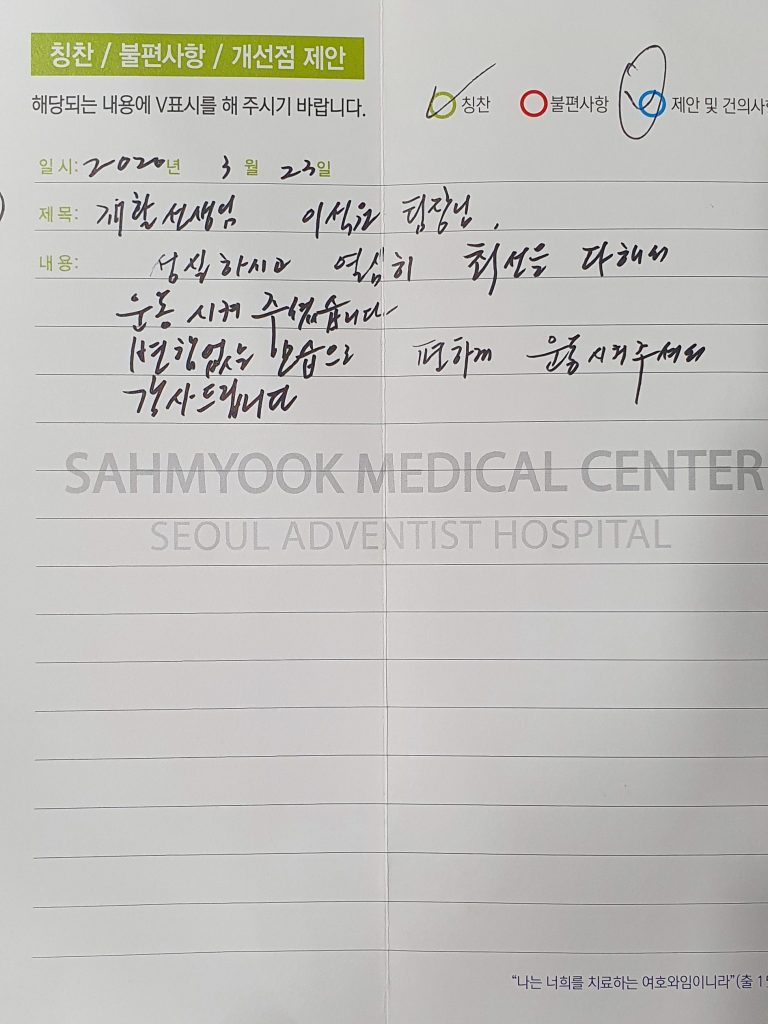 칭찬 / 불편사항 / 개선점 제안
해당되는 내용에 V표시를 해 주시기 바랍니다.
칭찬 불편사항 제안 및 건의사
일 시: 2020년 3월 23일
제 목: 재활선생님 이석 팀장님.
내 용: 성실하시고 열심히 최선을 다해서
운동 시켜 주셨습니다.
변함없는 모습으로 편하게 운동시켜주셔서
감사드립니다
SAHMYOOK MEDICAL CENTER
SEOUL ADVENTIST HOSPITAL
“나는 너희를 치료하는 여호와임이니라”(출 15